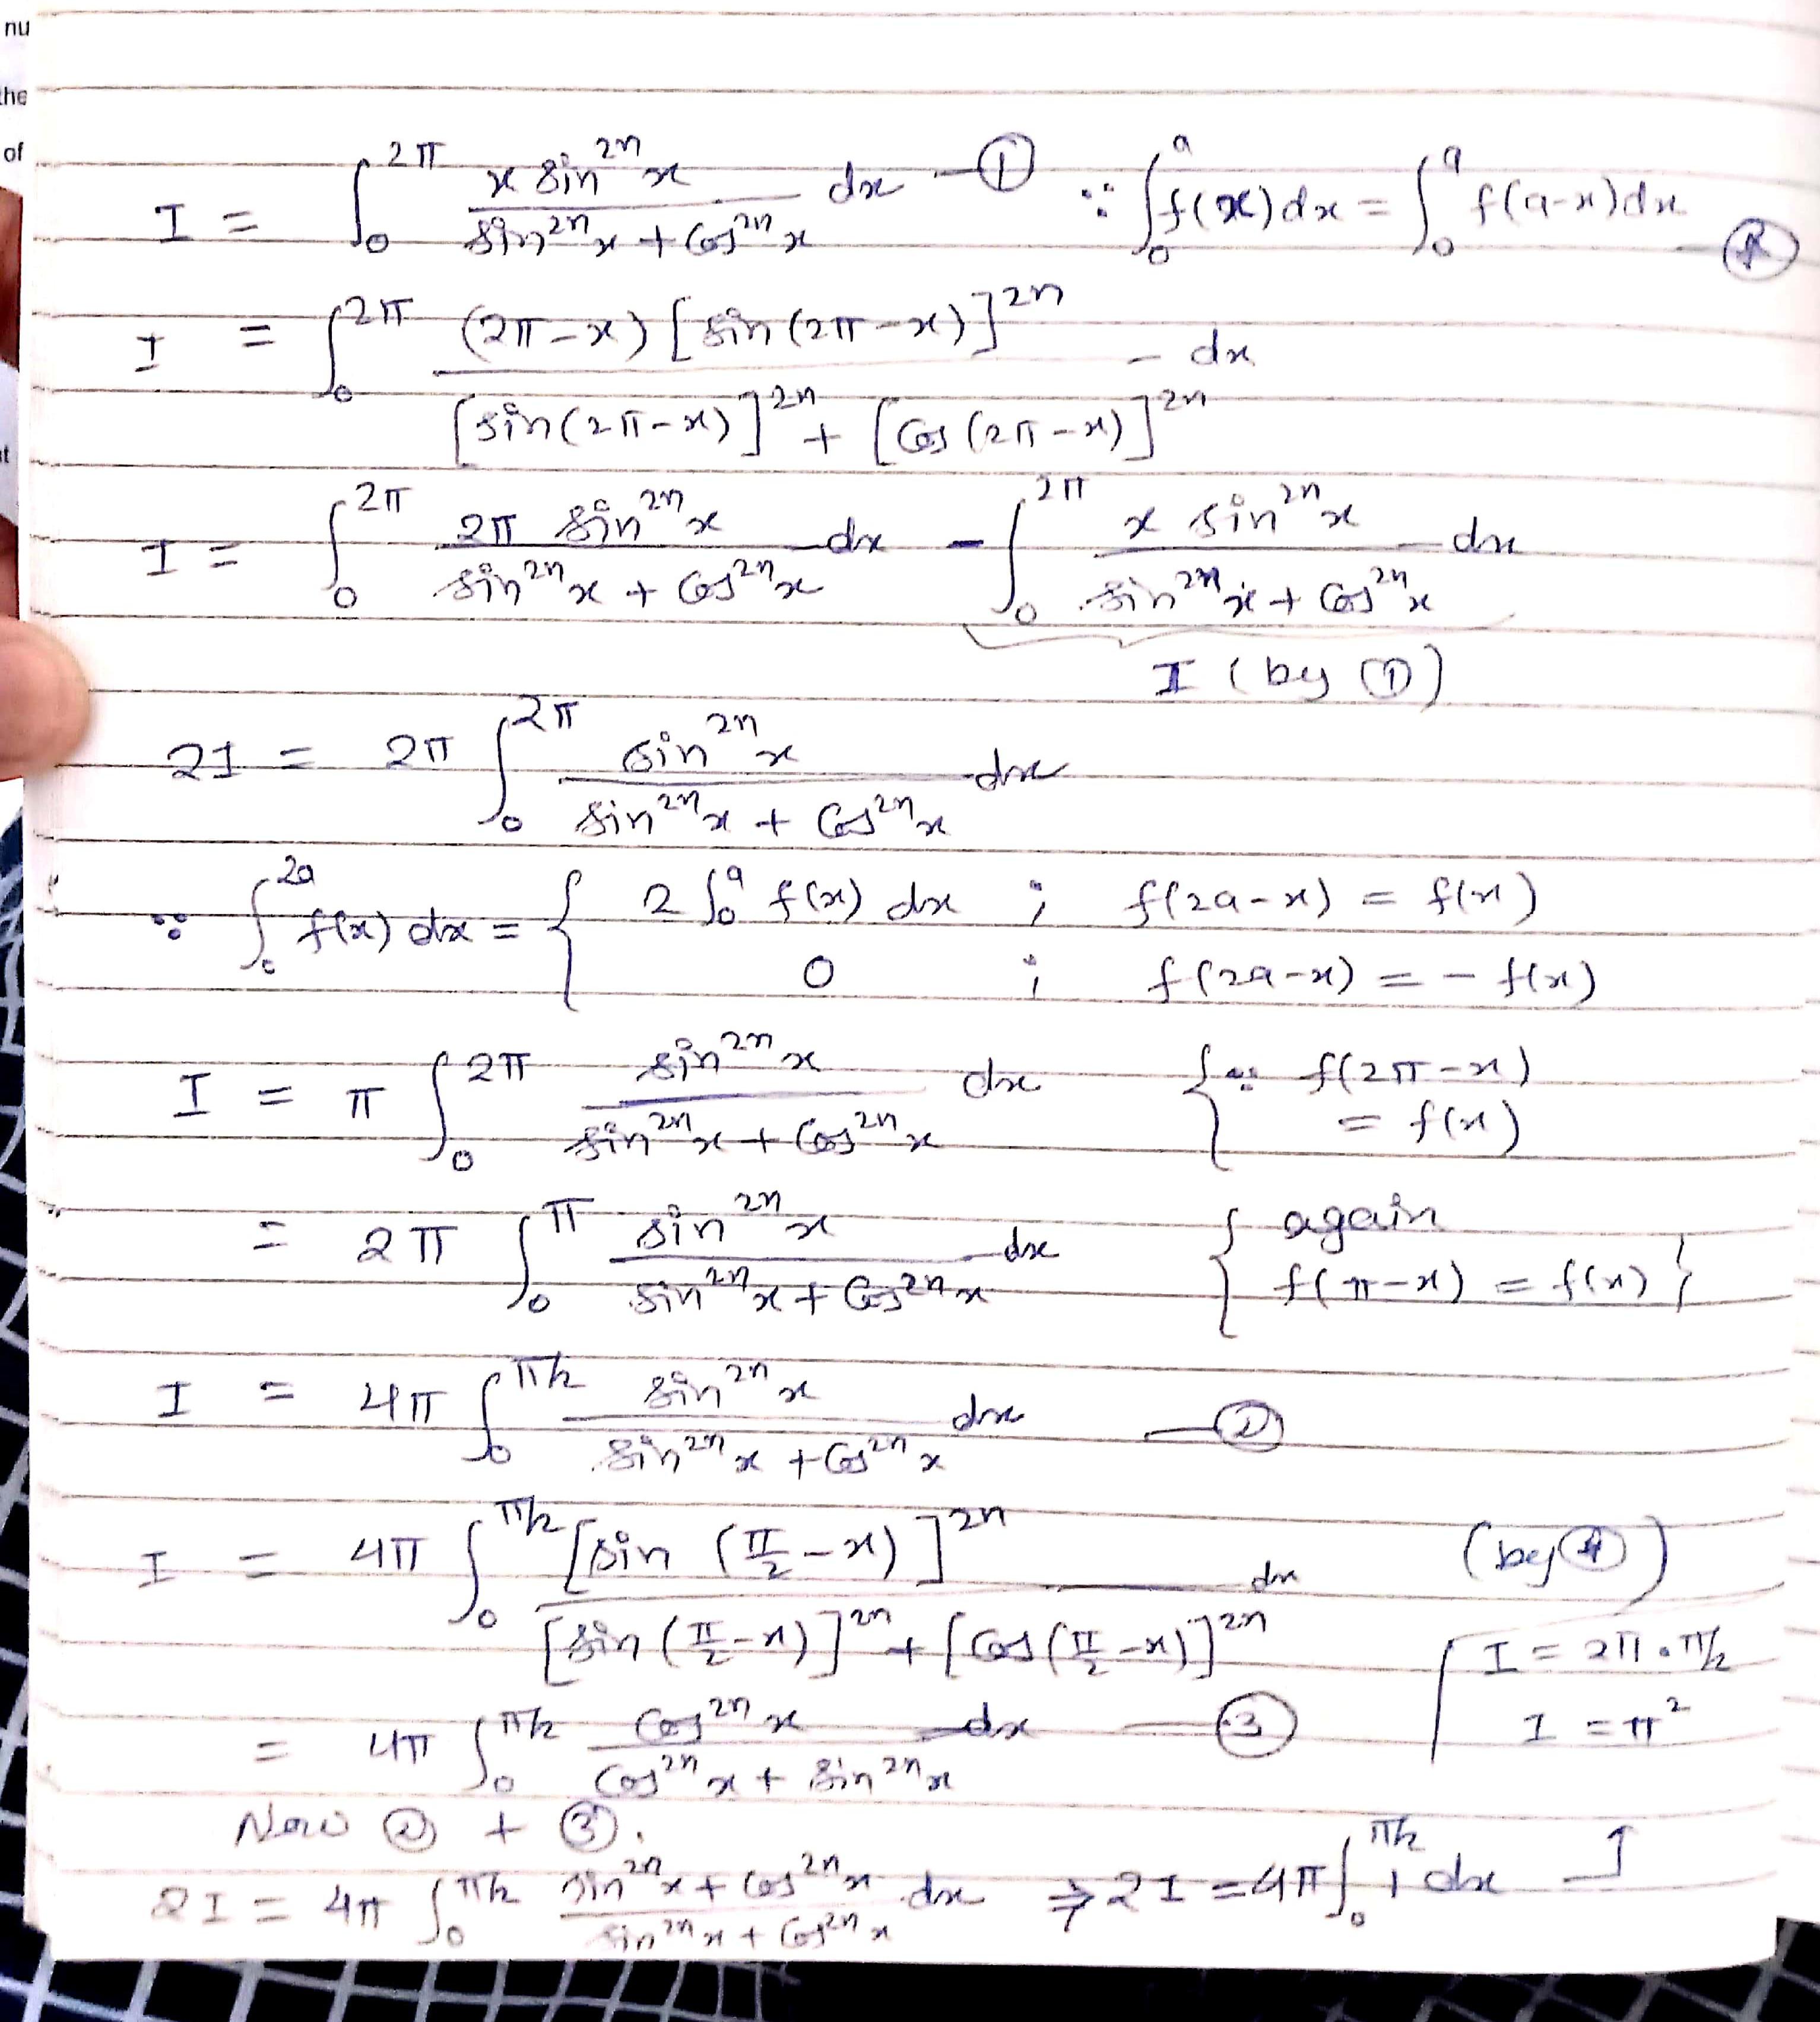 nu
the
of
I = ∫₀^{2π} x sin^{2n} x / (sin^{2n} x + Cos^{2n} x) dx — ① ∵ ∫₀^a f(x) dx = ∫₀^a f(a-x) dx —
I = ∫₀^{2π} (2π-x) [sin (2π-x)]^{2n} / ([sin(2π-x)]^{2n} + [Cos (2π-x)]^{2n}) dx
I = ∫₀^{2π} 2π sin^{2n} x / (sin^{2n} x + Cos^{2n} x) dx - ∫₀^{2π} x sin^{2n} x / (sin^{2n} x + Cos^{2n} x) dx
I (by ①)
2I = 2π ∫₀^{2π} sin^{2n} x / (sin^{2n} x + Cos^{2n} x) dx
∵ ∫₀^{2a} f(x) dx = { 2 ∫₀^a f(x) dx ; f(2a-x) = f(x)
0 ; f(2a-x) = - f(x)
I = π ∫₀^{2π} sin^{2n} x / (sin^{2n} x + Cos^{2n} x) dx { ∵ f(2π-x)
= f(x)
= 2π ∫₀^π sin^{2n} x / (sin^{2n} x + Cos^{2n} x) dx { again
f(π-x) = f(x) }
I = 4π ∫₀^{π/2} sin^{2n} x / (sin^{2n} x + Cos^{2n} x) dx — ②
I = 4π ∫₀^{π/2} [sin (π/2 - x)]^{2n} / ([sin (π/2 - x)]^{2n} + [Cos (π/2 - x)]^{2n}) dx (by
= 4π ∫₀^{π/2} Cos^{2n} x / (Cos^{2n} x + sin^{2n} x) dx — ③
Now ② + ③.
2I = 4π ∫₀^{π/2} (sin^{2n} x + Cos^{2n} x) / (sin^{2n} x + Cos^{2n} x) dx ⇒ 2I = 4π ∫₀^{π/2} 1 dx
I = 2π . π/2
I = π²